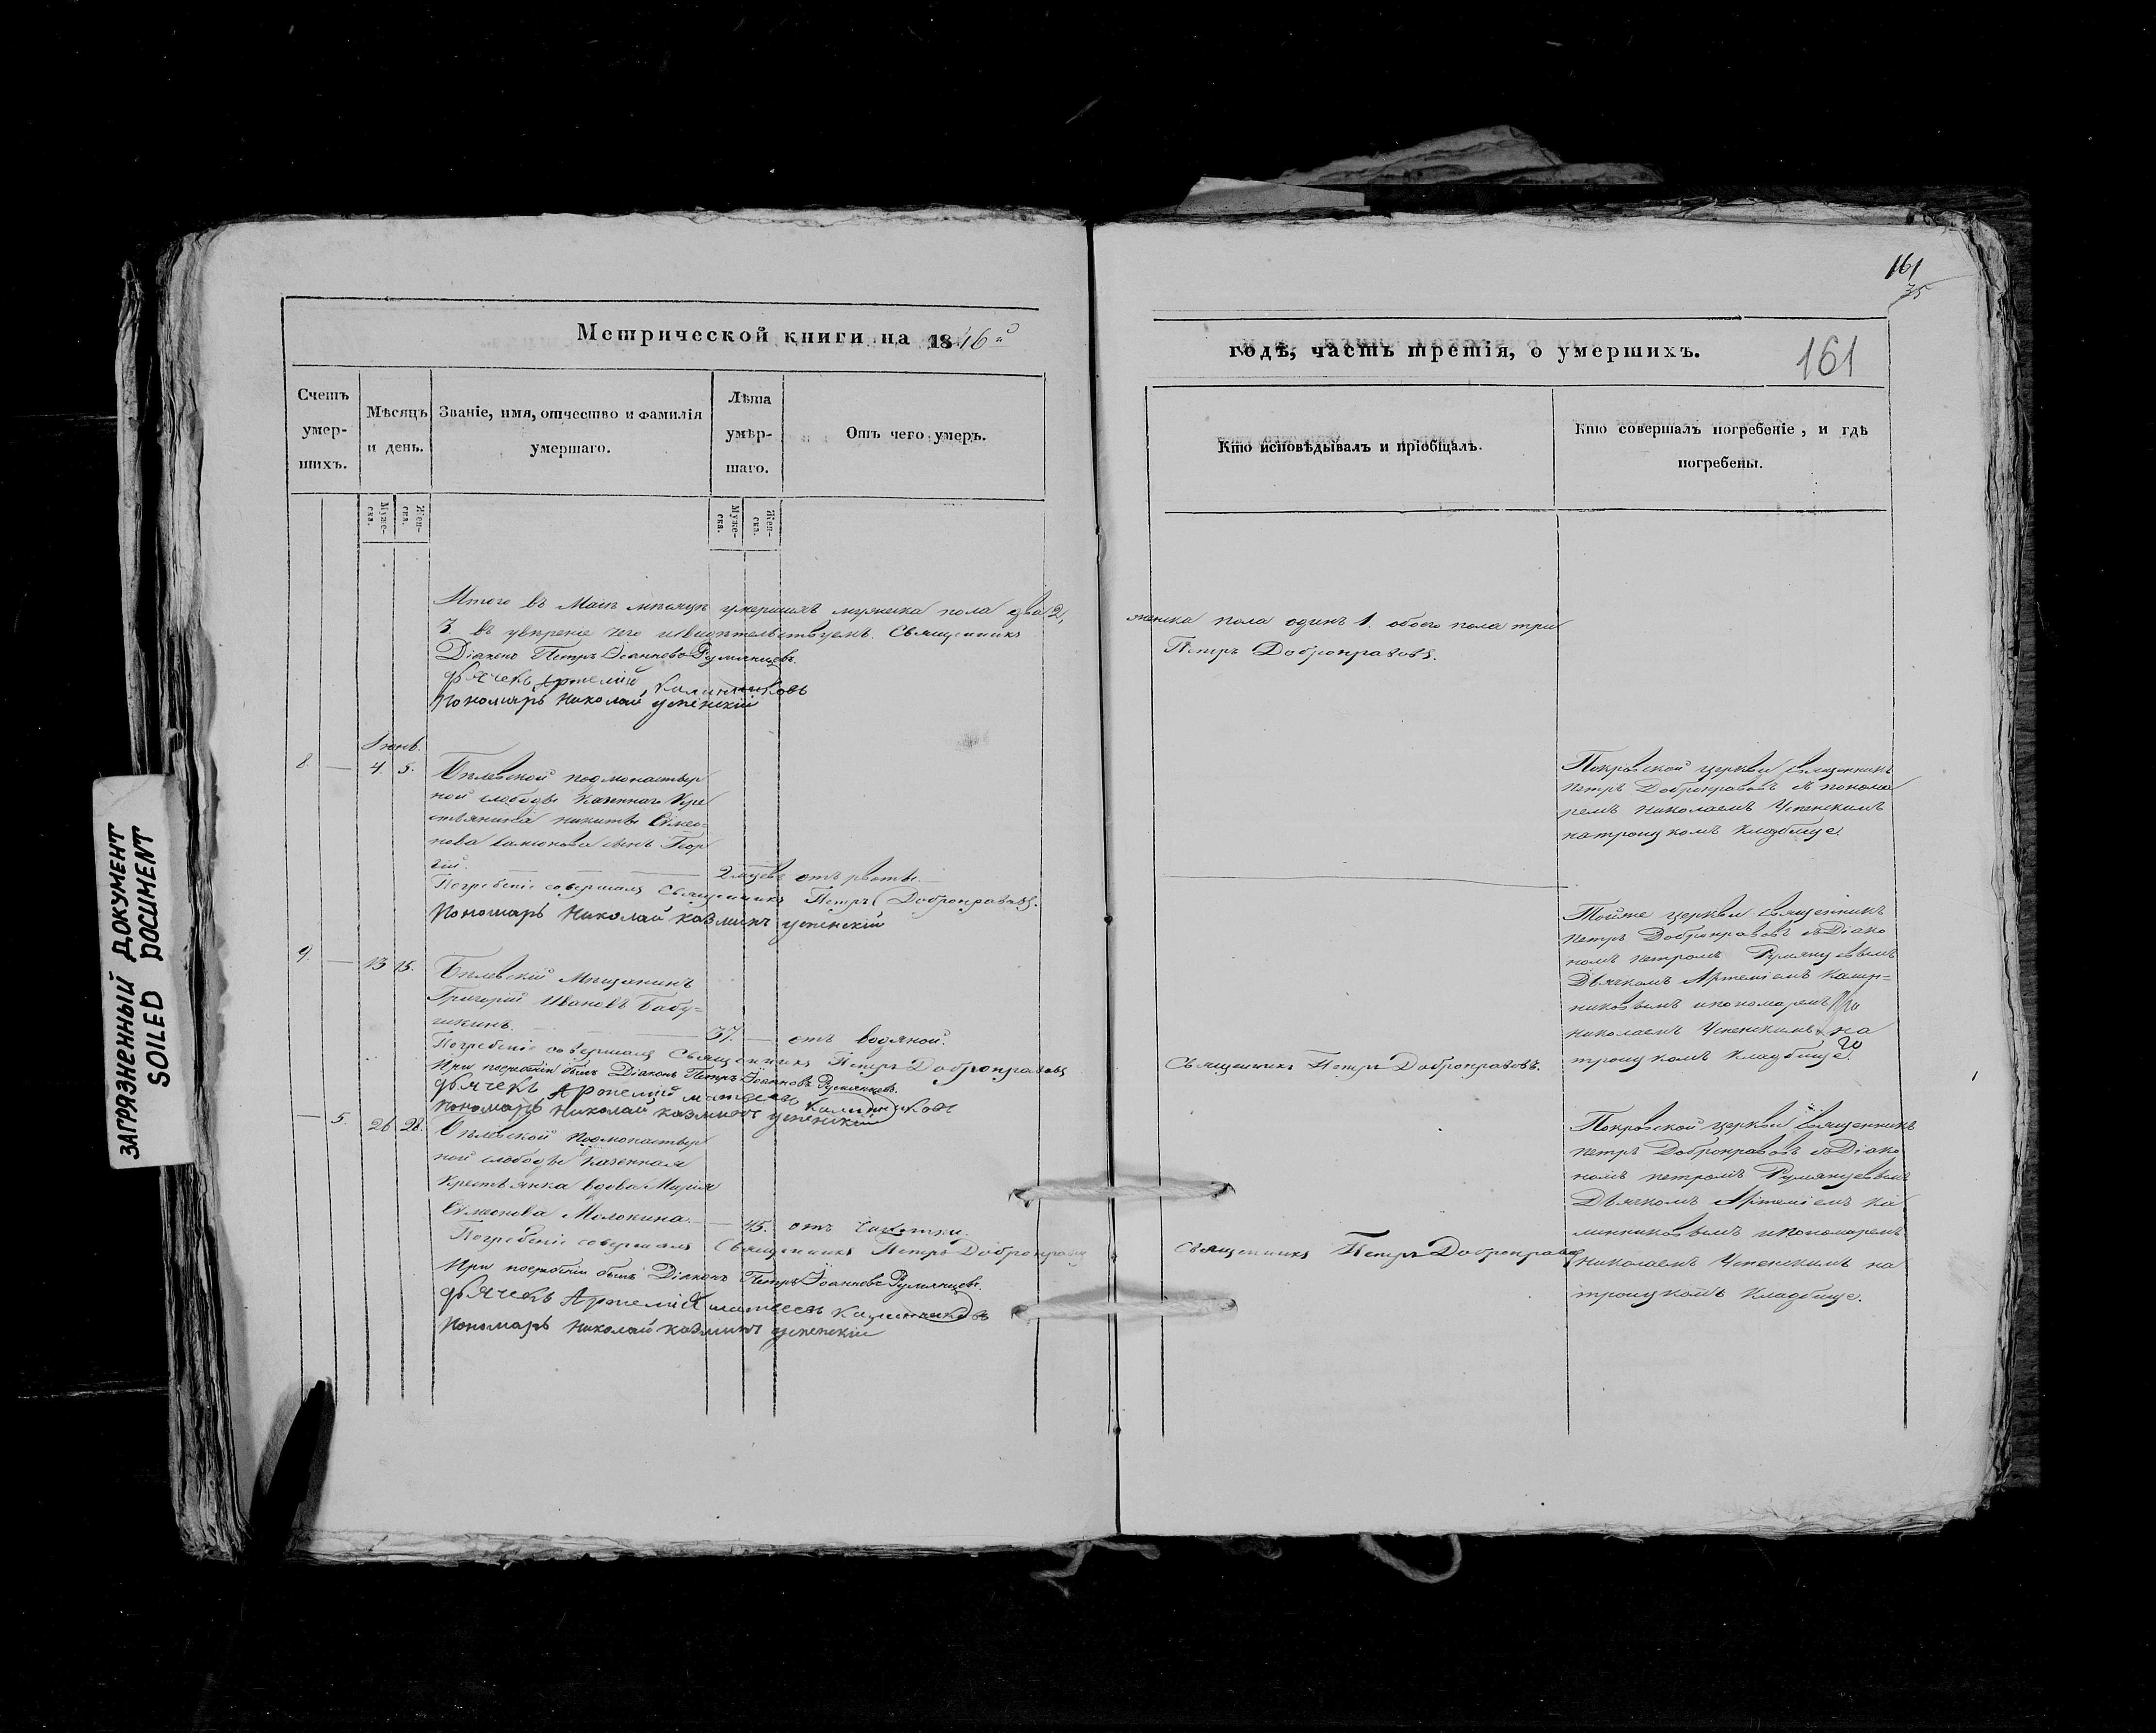 161
35
Метрической книги на 1846й
годѣ, часть третія, о умершихъ.
161
Счетъ умер-шихъ.
Мѣсяцъ и день.
Званіе, имя, отчество и фамилія умершаго.
Лѣта умѣр-шаго.
Отъ чего умеръ.
Кто исповѣдывалъ и пріобщалъ.
Кто совершалъ погребеніе, и гдѣ погребены.
Муже-ска.
Жен-ска.
Муже-ска.
Жен-ска.
Итого въ Маѣ мѣсяцѣ умершихъ мужеска пола два 2,
женска пола одинъ 1. обоего пола три
3. въ увѣреніе чего и свидѣтельствуемъ. Священникъ
Петръ Добронравовъ.
Діаконъ Петръ Іоанновъ Румянцевъ.
дьячекъ Артемий Калинниковъ
Пономарь Николай успенскій
Іюнь.
8. — 4. 5.
Бѣлевской подмонастыр
ной слободы казеннаго Кре
стьянина никиты Симео-
нова сынъ Геор
гій. — 2 мцевъ отъ рвоты.
Погребеніе совершалъ Священникъ Петръ Добронравовъ.
Пономарь Николай казминъ успенскій
Покровской церкви священникъ
петръ Добронравовъ съ понома
ремъ николаемъ Успенскимъ
на троицкомъ кладбище.
9. — 13 15.
Бѣлевскій Мѣщанинъ
Григорій Ивановъ Бабу-
шкинъ. — 37. — отъ водяной.
Погребеніе совершалъ Священникъ Петръ Добронравовъ
При погребеніи былъ Діаконъ Петръ Іоанновъ Румянцевъ.
дьячекъ Артемий матвеевъ Калинниковъ
пономарь Николай казминъ успенскій
Священникъ Петръ Добронравовъ.
Тойже церкви священникъ
петръ Добронравовъ съ Діако
номъ петромъ Румянцевымъ
Дьячкомъ Артеміемъ Калин-
никовымъ и пономаремъ
николаемъ Успенскимъ на
троицкомъ кладбище.
— 5. 26 28.
Бѣлевской Подмонастыр
ной слободы казенная
Крестьянка вдова Марія
Симионова Молокина. — 45. отъ чахотки.
Погребеніе совершалъ Священникъ Петръ Добронраво
При погребеніи былъ Діаконъ Петръ Іоанновъ Румянцевъ.
дьячекъ Артемий матвеевъ Калинниковъ
Пономарь Николай казминъ успенскій
Священникъ Петръ Добронравов
Покровской церкви священникъ
петръ Добронравовъ съ Діако
номъ петромъ Румянцевымъ
Дьячкомъ Артеміемъ Ка
линниковымъ и Пономаремъ
Николаемъ Успенскимъ на
троицкомъ кладбище.
ЗАГРЯЗНЕННЫЙ ДОКУМЕНТ
SOILED DOCUMENT